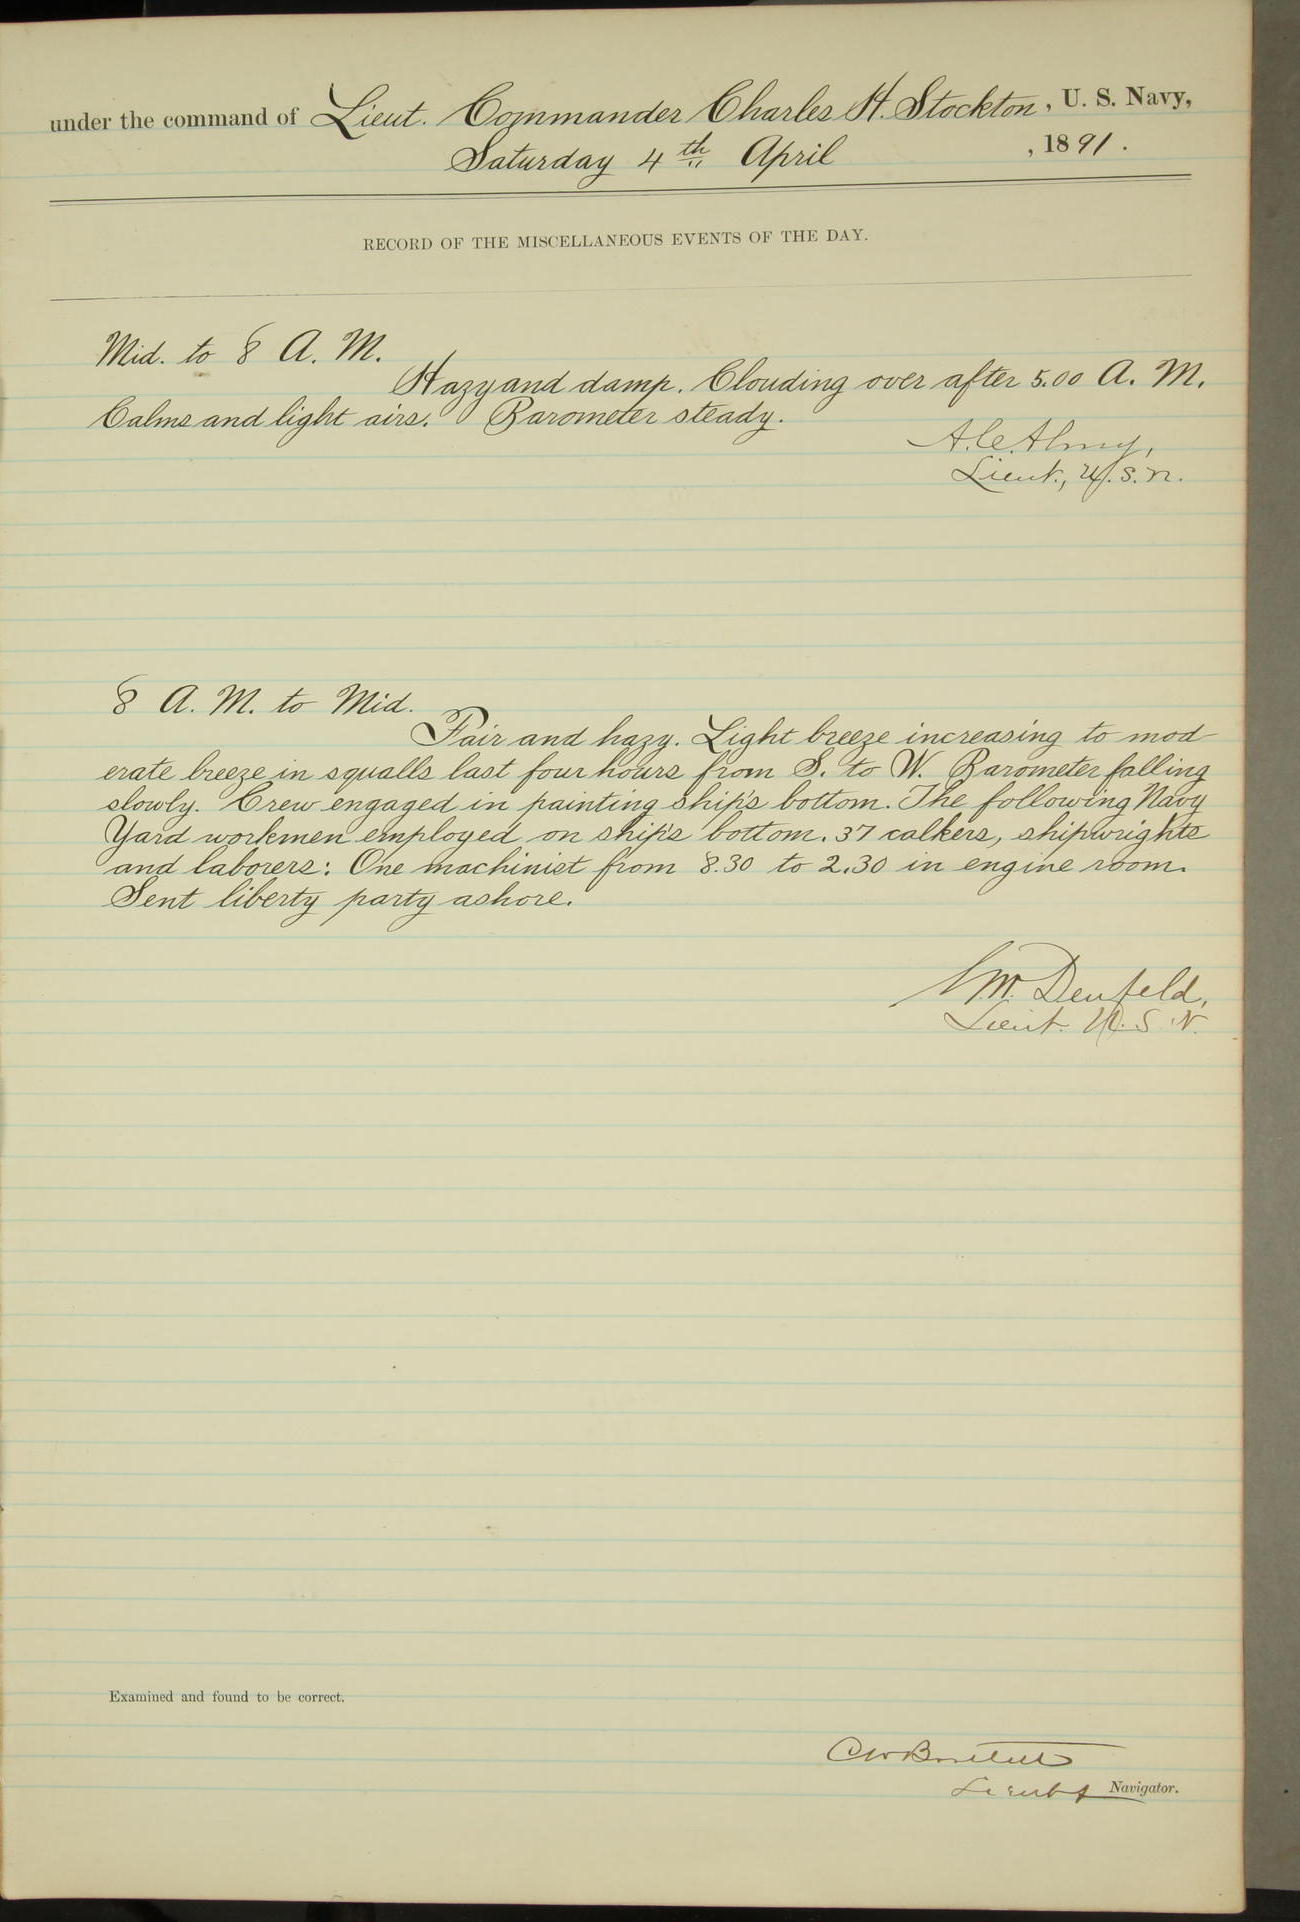 under the command of Lieut. Commander Charles H. Stockton, U. S. Navy,
Saturday 4th April , 1891.
RECORD OF THE MISCELLANEOUS EVENTS OF THE DAY.
Mid. to 8 A. M.
Hazy and damp. Clouding over after 5.00 A. M.
Calms and light airs. Barometer steady.
A.C. Almy,
Lieut., U.S.N.
8 A. M. to Mid.
Fair and hazy. Light breeze increasing to mod
erate breeze in squalls last four hours from S. to W. Barometer falling
slowly. Crew engaged in painting ship's bottom. The following Navy
Yard workmen employed on ship's bottom. 37 calkers, shipwrights
and laborers: One machinist from 8.30 to 2.30 in engine room.
Sent liberty party ashore.
Denfeld,
Lieut. U.S.N.
Examined and found to be correct.
C W Bartlett
Lieut & Navigator.